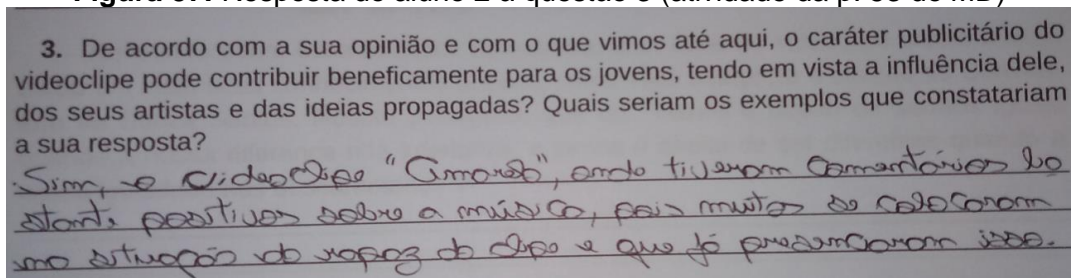 3. De acordo com a sua opinião e com o que vimos até aqui, o caráter publicitário do
videoclipe pode contribuir beneficamente para os jovens, tendo em vista a influência dele,
dos seus artistas e das ideias propagadas? Quais seriam os exemplos que constatariam
a sua resposta?
Sim, o videoclipe "Amorêb", onde tiveram comentários ba
stante positivos sobre a música, pois muitos se colocaram
na situação do rapaz do clipe e que já presenciaram isso.